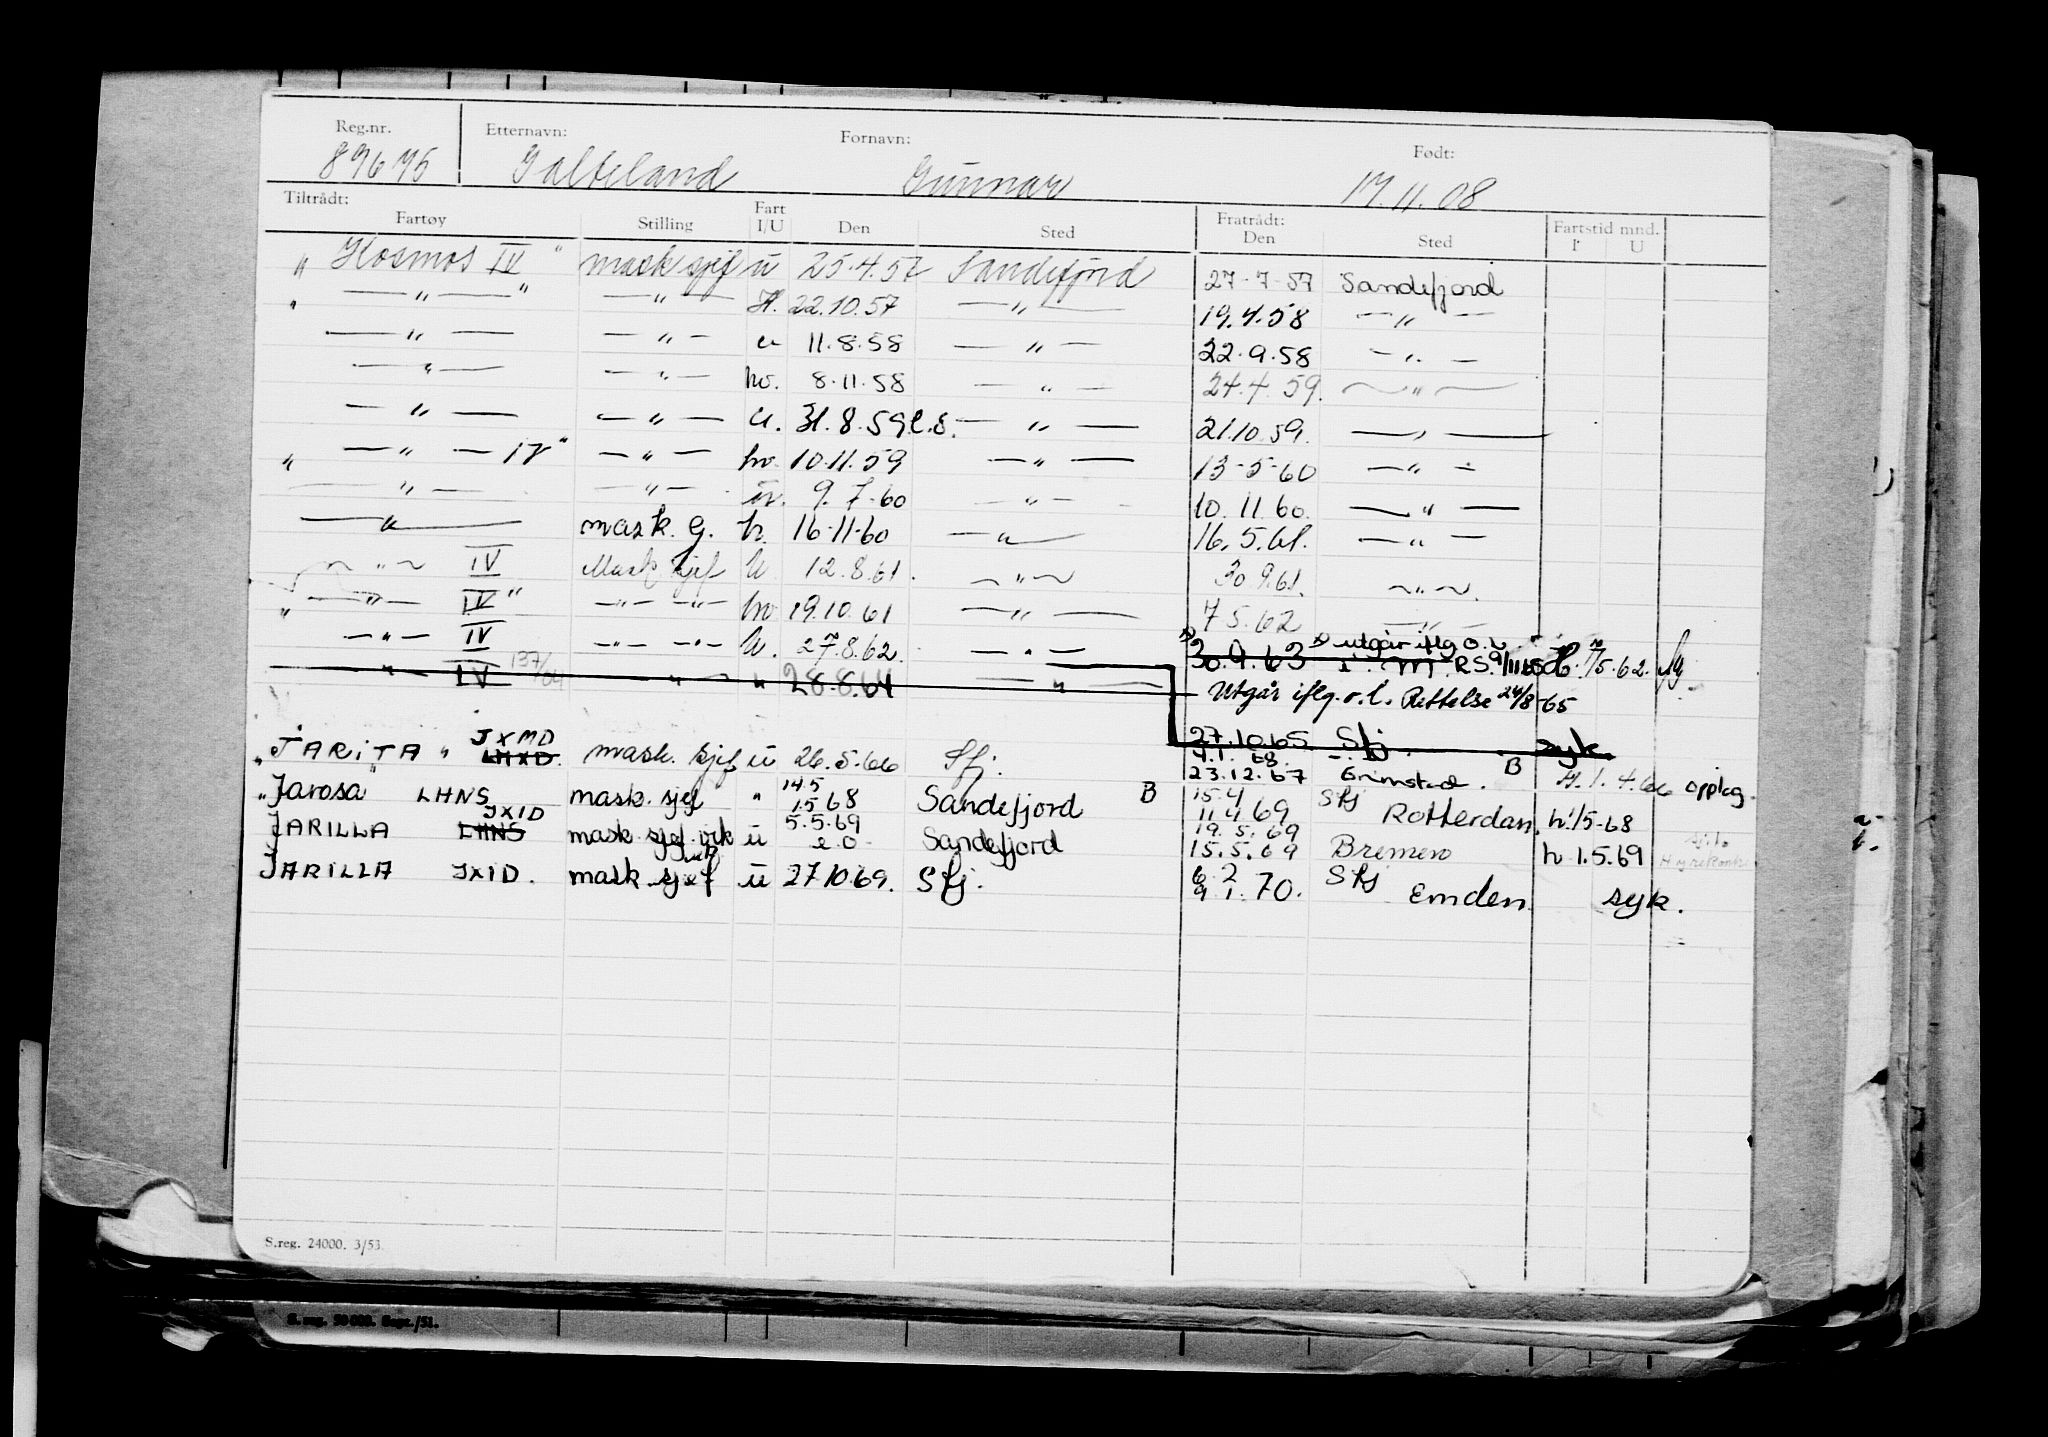 Reg.nr. Etternavn: Fornavn: Født:
89675 Galteland Gunnar 17.11.08
Tiltrådt: Fratrådt:
Fartøy Stilling Fart I/U Den Sted Den Sted Fartstid mnd. I U
" Kosmos IV " mask sjef u 25.4.57 Sandefjord 27-7-57 Sandefjord
" — " — " — " — H. 22.10.57 — " — 19.4.58 — " —
— " — — " — u 11.8.58 — " — 22.9.58 — " —
— " — — " — hv. 8.11.58 — " — 24.4.59. — " —
— " — — " — u. 31.8.59 l.s. — " — 21.10.59. — " —
" — " — IV " — " — hv. 10.11.59 — " — 13-5-60 — " —
— " — — " — 9.7.60 — " — 10.11.60. — " —
— " — mask. g. h. 16-11-60 — " — 16.5.61. — " —
— " — IV Mask sjef U. 12.8.61. — " — 30.9.61. — " —
" — " — IV " — " — — " — hv 19.10.61 — " — 7.5.62 — " —
— " — IV — " — — " — U. 27.8.62. — " — 30.9.63 utgår iflg o.l. 7/5.62.
— " — IV 137/64 — " — " 28.8.64 — " — Utgår iflg. o.l. Rettelse 24/8-65
27.10.65 Sfj. syk.
" JARITA " JXMD LHXD. mask. sjef u 26.5.66 Sfj. 4.1.68. 23.12.67 Grimstad. B H.1.4.66 opplag.
" Jarosa " LHNS mask. sjef " 14.5 1.5 68 Sandefjord B 15.4 11.4.69 Sfj Rotterdam. h.1/5-68
JARILLA JXID LHNS mask. sjef. vik u 5.5.69 e.o. Sandefjord 19.5.69 15.5.69 Bremen h 1.5.69
JARILLA JXID. mask. sjef u 27.10.69. Sfj. 6.2 9.1.70. Sfj Emden. syk.
S.reg. 24000. 3/53
S. reg. 50 000. Sept./51.